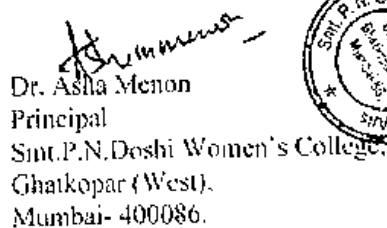 Dr. Asha Menon
Principal
Smt.P.N.Doshi Women's College,
Ghatkopar (West),
Mumbai- 400086.
Smt. P. N.